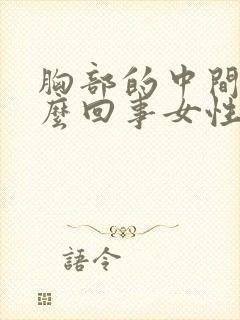 胸部的中間
麼回事女性
語令